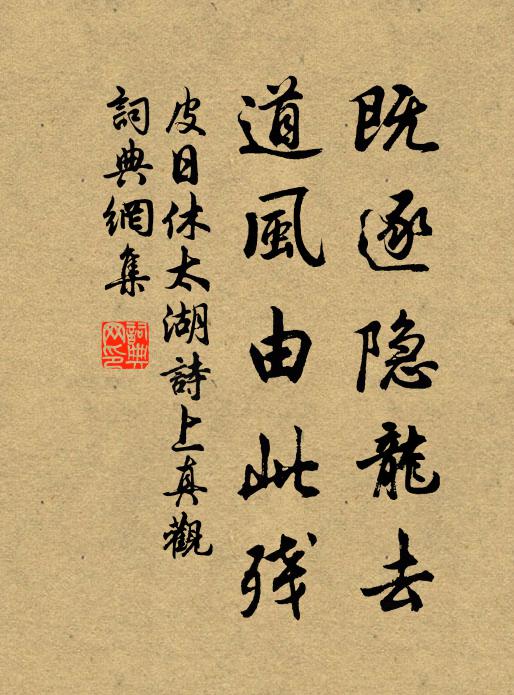 既逐隐龍去
道風由此残
皮日休太湖詩上真觀
詞典網集
詞典網印